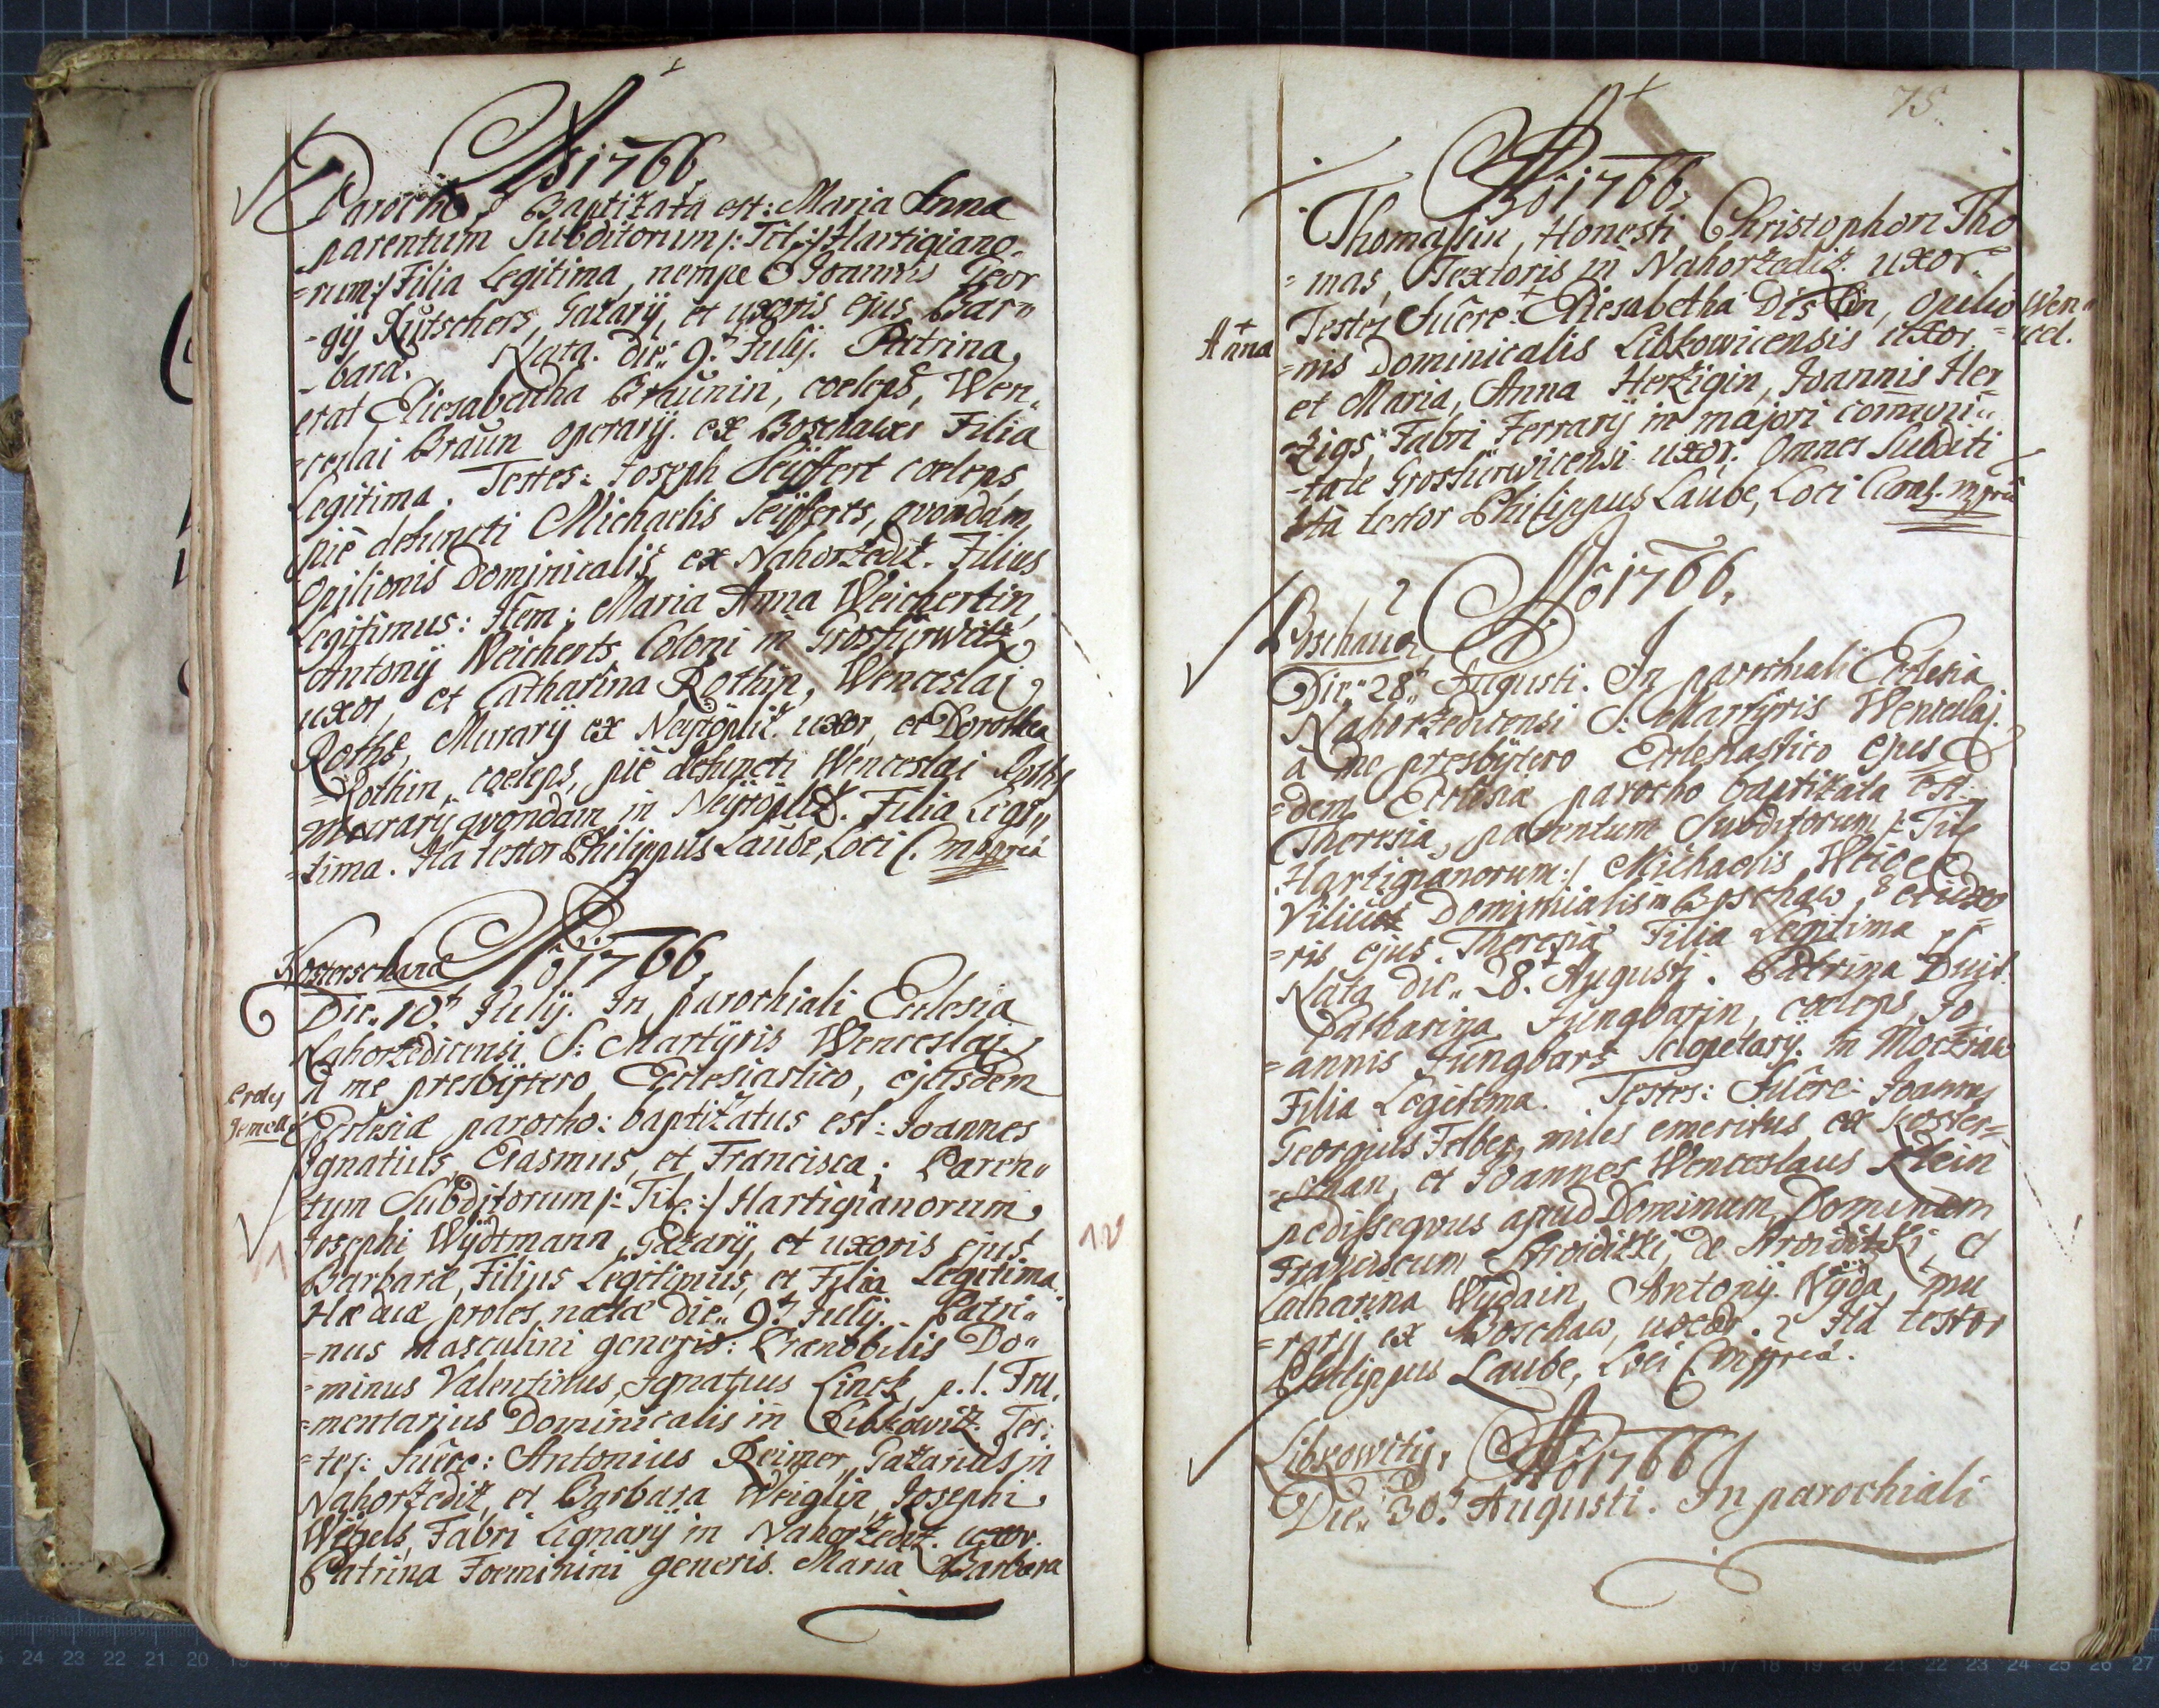 Aõ 1766.
Parocho Baptizata est: Maria Anna
parentum Subditorum /: Tit: / Hartigiano-
=rum:/ Filia Legitima, nempe Joannis Geor
-gij Kutschers, Gazarij, et uxoris ejus Bar„
-baræ. Nata die 9ª Julij. Patrina
erat Eliesabetha Braunin, coelebs, Wen„
=ceslai Braun operarij ex Boschawes Filia
Legitima. Testes: Joseph Seÿffert coelebs
piè defuncti Michaelis Seÿfferts, qvondam
Opilionis Dominicalis ex Nahorzediz. Filius
Legitimus: Item: Maria Anna Weichertin,
Antonij Weicherts Coloni in Grosfürwitz
uxor, et Catharina Rothin, Wenceslai
Roths, Murarij ex Neÿtöpliz. uxor, et Dorothea
=Rothin, coelebs, piè defuncti Wenceslai Roths
Murarij qvondam in Neÿtöpliz. Filia Legi„
=tima. Ità testor Philippus Laube, Loci C. mppria
Aõ 1766.
Kosterschana
Die„ 10ª Julij. In parochiali Ecclesia
Nahorzedicensi S: Martÿris Wenceslaj
à me presbÿtero Ecclesiastico, ejusdem
Proles
gemellæ
Ecclesiæ parocho: baptizatus est: Joannes
Ignatius, Erasmus, et Francisca; Paren„
tum Subditorum /: Tit: :/ Hartigianorum,
Josephi Wÿdtmann, Gazarij, et uxoris ejus
Barbaræ, Filius Legitimus, et Filia Legitima.
Hæ duæ proles, natæ die„ 9ª Julij. Patri„
=nus masculini generis: Prænobilis Do„
=minus Valentinus, Ignatius Linck, p. t. Fru,
=mentarius Dominicalis in Libkowitz. Tes:
=tes: Fuêre: Antonius Reimer, Gazarius in
Nahorzediz, et Barbara Weiglin, Josephi
Weigels, Fabri Lignarij in Nahorzediz. uxor.
Patrina Foeminini generis. Maria Barbara
10
75.
Aõ 1766.
Thomassin, Honesti Christophori Tho
=mas, Textoris in Nahorzediz. uxor.
Testes Fuêre: Eliesabetha Distin, opilio Wen„
Anna
=nis Dominicalis Libkowicensis uxor. =cel.
et Maria, Anna Herzigin, Joannis Her
zigs, Fabri Ferrarij in majori comuni„
-tate Grosfürwicensi uxor. Omnes Subditi
Ità testor Philippus Laube, Loci Curat. mpria
Aõ 1766.
Boschaua
Die„ 28ª Augusti. In parochiali Ecclesia
Nahorzedicensi S: Martÿris Wenceslaj
à me presbÿtero Ecclesiastico ejus
=dem Ecclesiæ parocho baptizata est
Theresia, parentum Subditorum /: Tit:
Hartigianorum:/ Michaelis Weibe
Villici Dominicalis in Boschaw, et uxo
=ris ejus. Theresiæ Filia Legitima
Nata die„ 28. Augusti. Patrina Fuit.
Catharina Jungbarin, coelebs, Jo
=annis Jungbars Sclopetarij in Moczraw
Filia Legitima. Testes: Fuêre: Joannes
Georgius Felber, miles emeritus ex Koster=
=schan, et Joannes Wenceslaus Klein
pedissequus apud Dominum, Dominum
Franciscum Hroidizki, de Hroidizki, et
Catharina Wÿdain, Antonij Wÿda, mu
=rarij ex Boschaw, uxor. Ità testor
Philippus Laube, Loci C. mppria.
Libkowitz.
Aõ 1766
Die„ 30ª Augusti. In parochiali